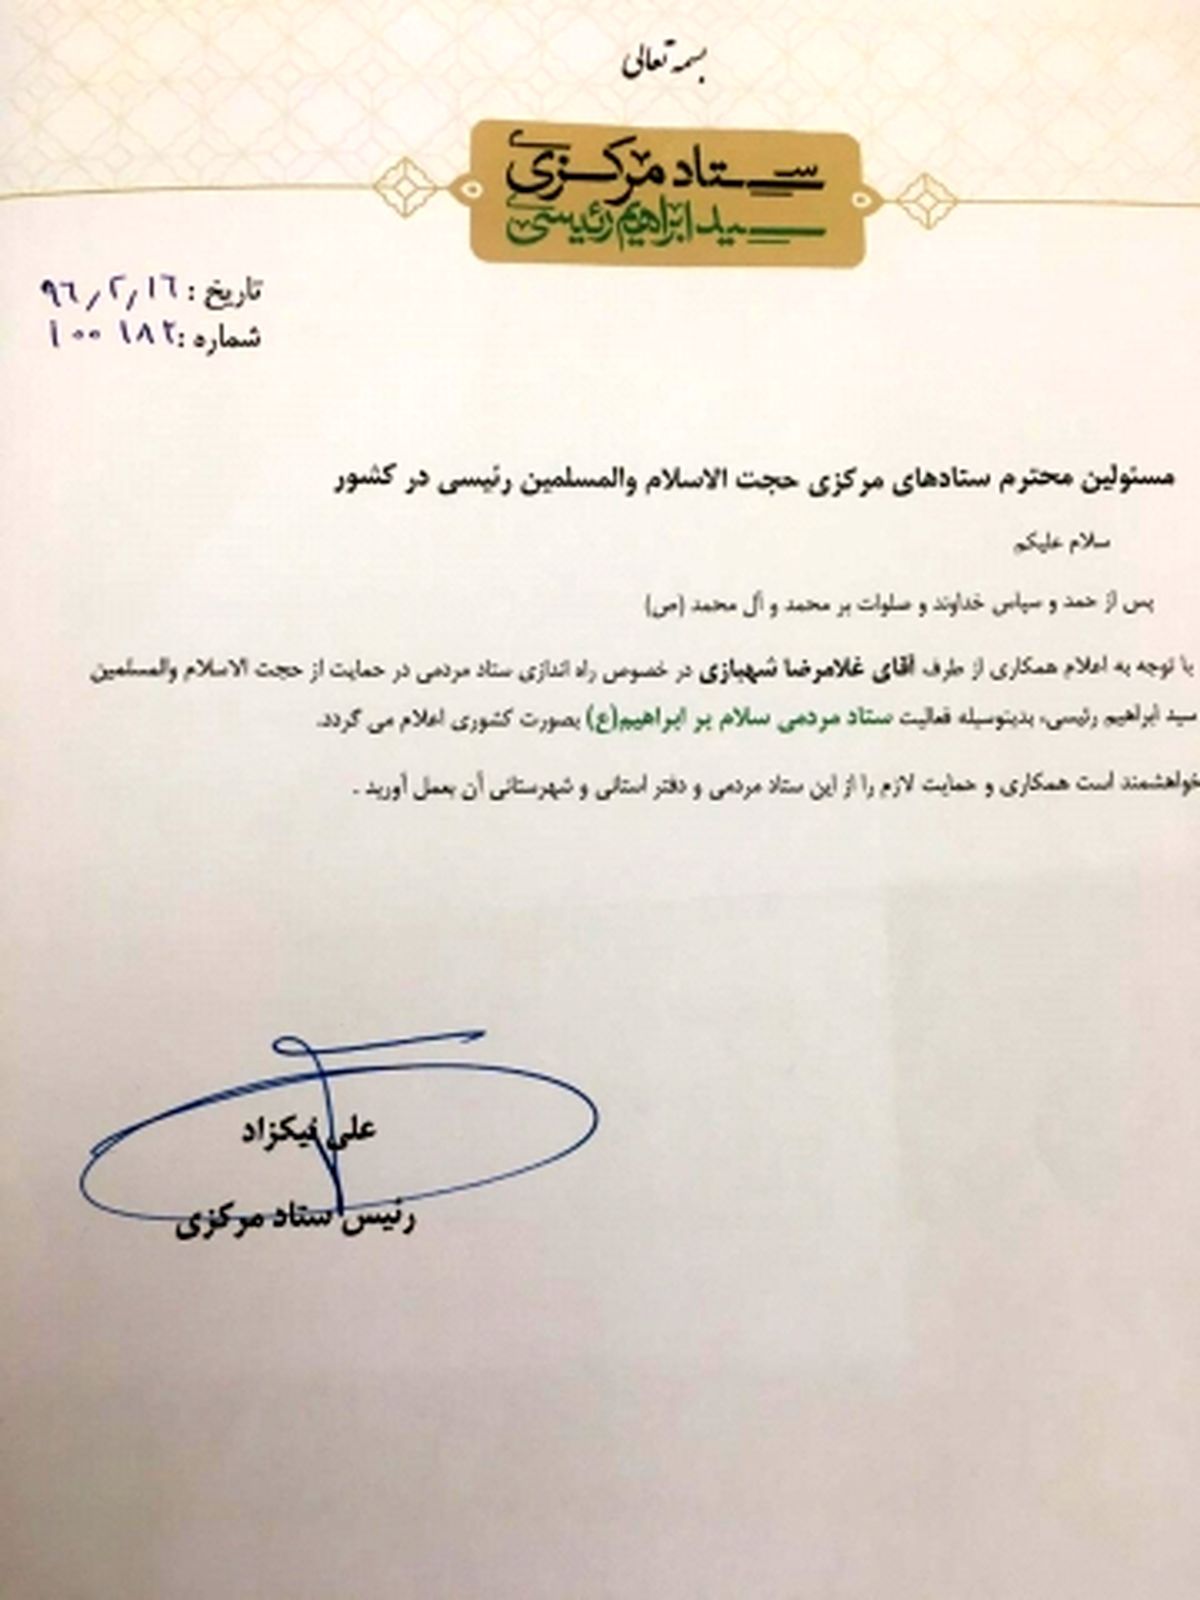 بسمه تعالی
ستاد مرکزی
سید ابراهیم رئیسی
تاریخ : ۹٦٫۲٫۱٦
شماره : ۱۰۰۱۸۲
مسئولین محترم ستادهای مرکزی حجت الاسلام والمسلمین رئیسی در کشور
سلام علیکم
پس از حمد و سپاس خداوند و صلوات بر محمد و آل محمد (ص)
با توجه به اعلام همکاری از طرف آقای غلامرضا شهبازی در خصوص راه اندازی ستاد مردمی در حمایت از حجت الاسلام والمسلمین
سید ابراهیم رئیسی، بدینوسیله فعالیت ستاد مردمی سلام بر ابراهیم(ع) بصورت کشوری اعلام می گردد.
خواهشمند است همکاری و حمایت لازم را از این ستاد مردمی و دفتر استانی و شهرستانی آن بعمل آورید .
علی نیکزاد
رئیس ستاد مرکزی